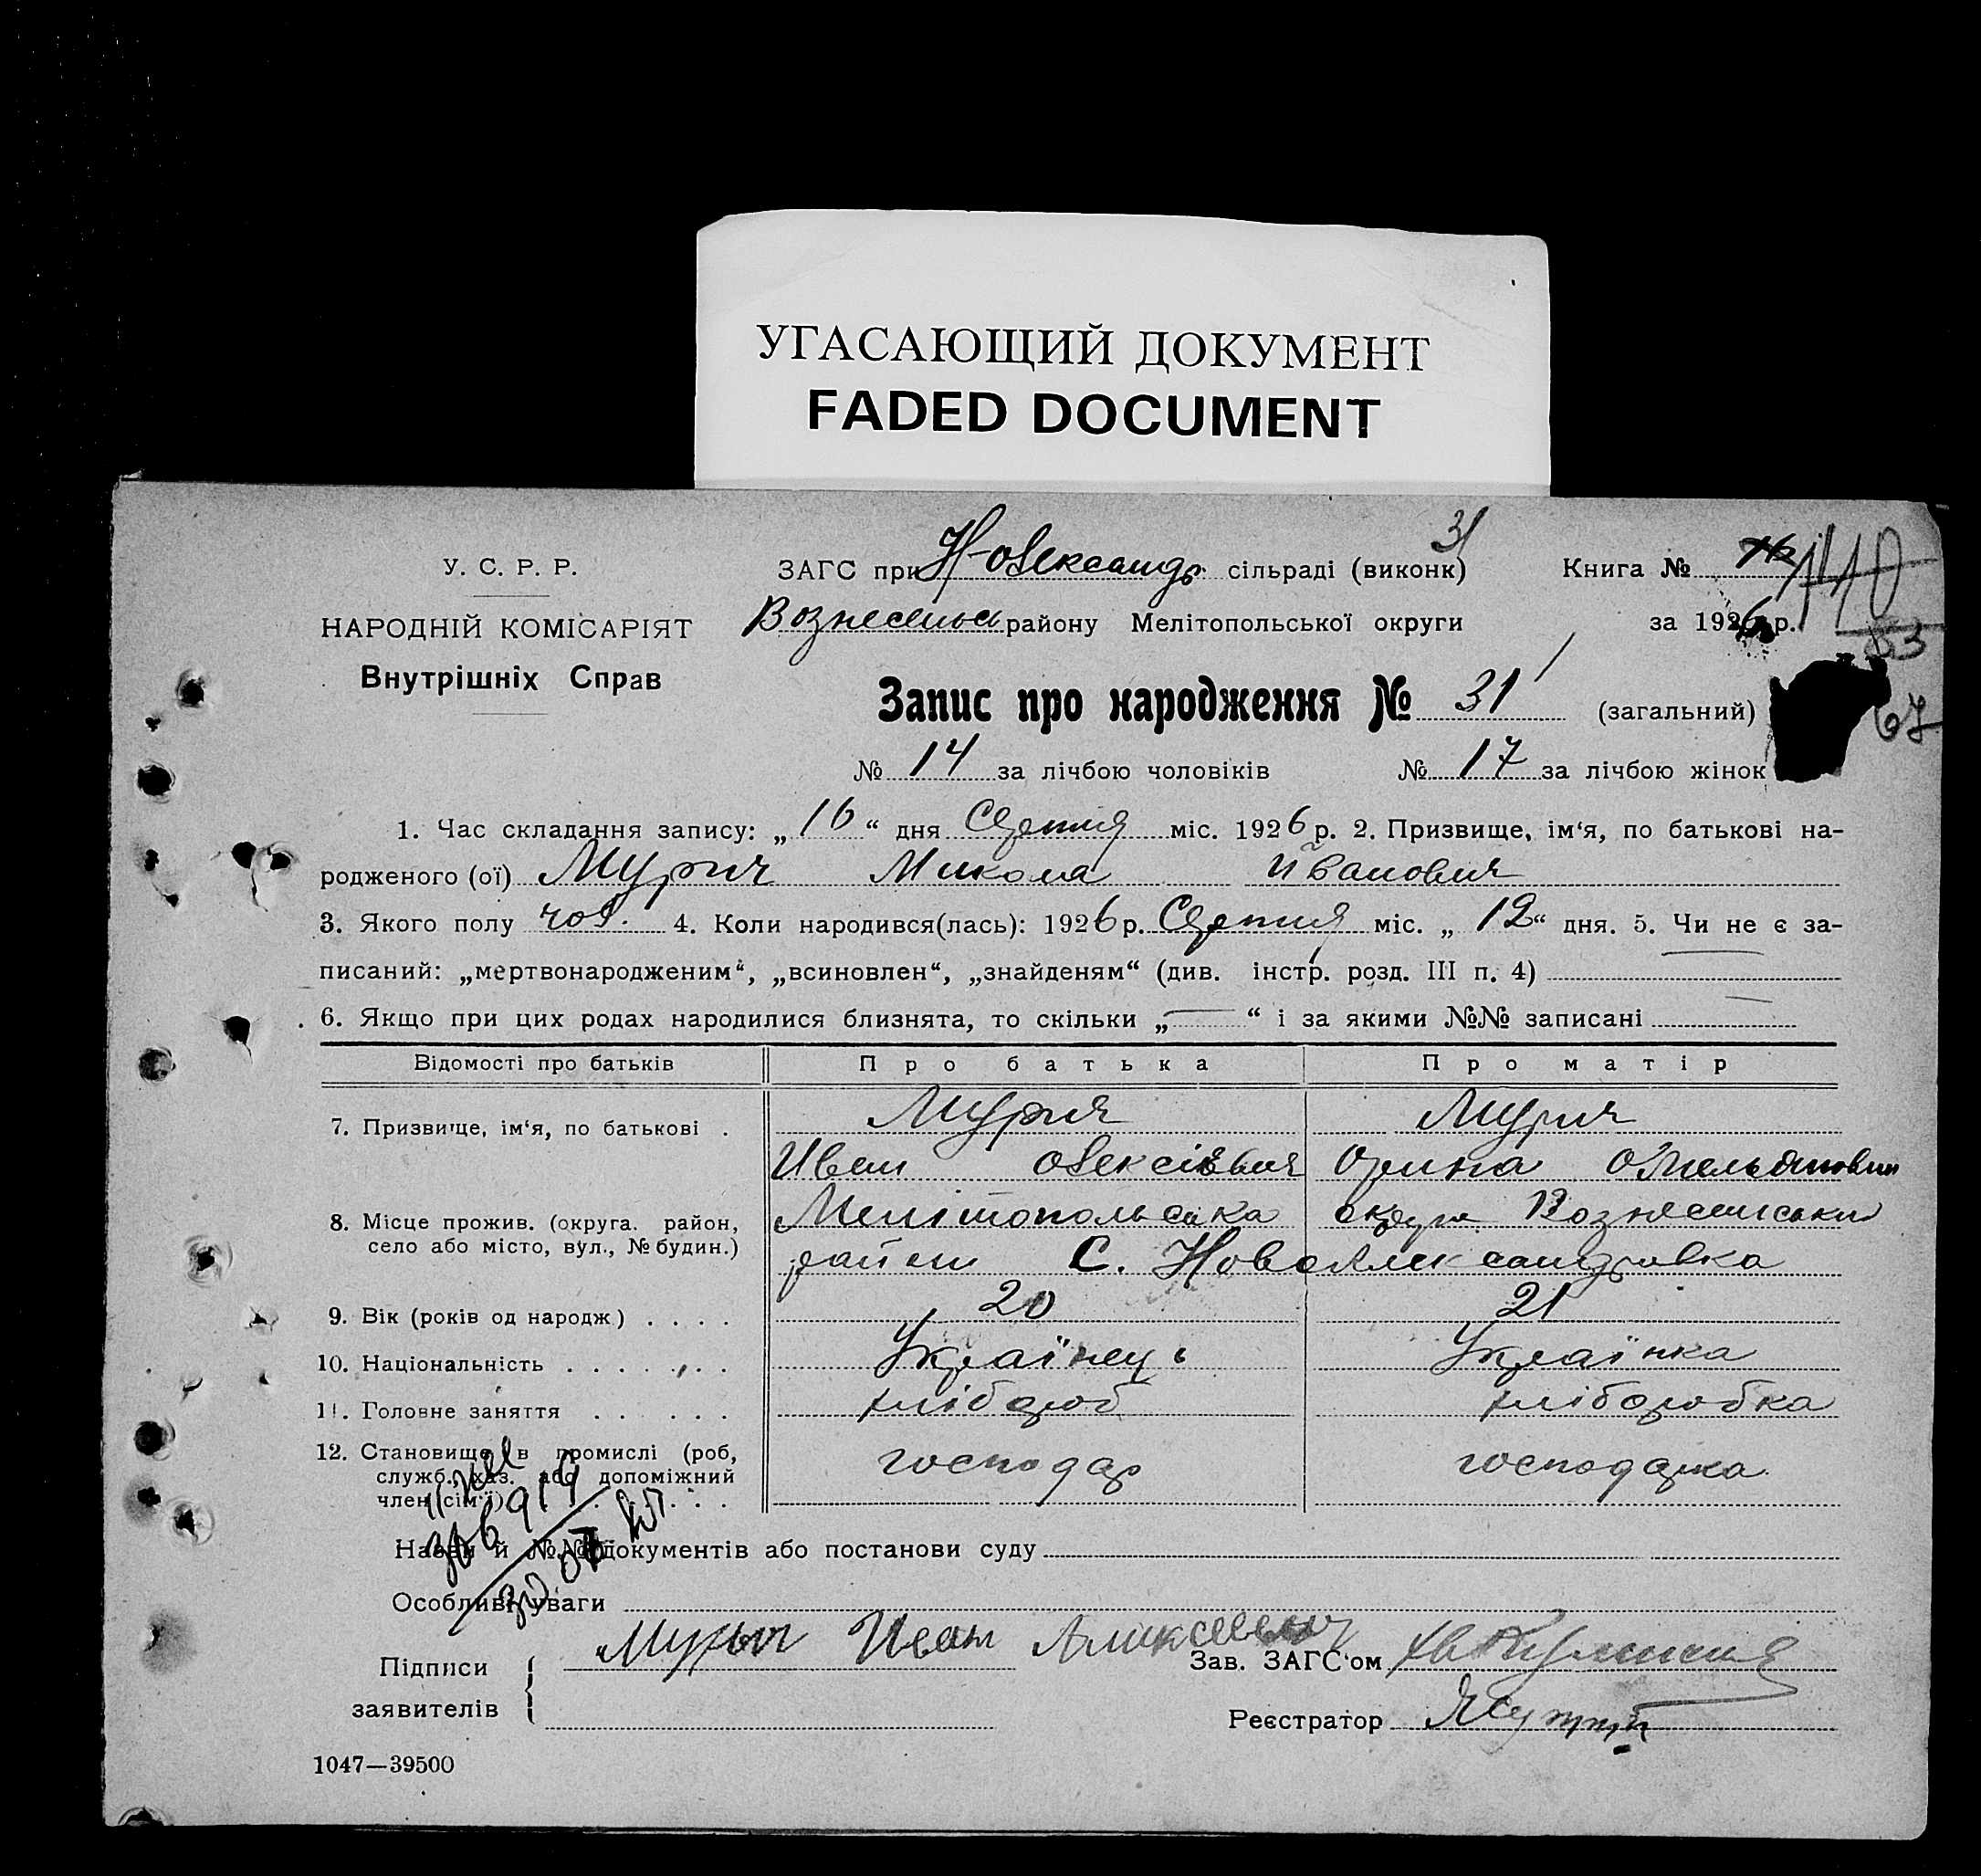 УГАСАЮЩИЙ ДОКУМЕНТ
FADED DOCUMENT
31
У. С. Р. Р.
НАРОДНІЙ КОМІСАРІЯТ
Внутрішніх Справ
ЗАГС при Н-оλександр сільраді (виконк) Книга №
Вознесенськ району Мелітопольської округи за 1926 р.
63
Запис про народження № 31 (загальний)
67
№ 14 за лічбою чоловіків № 17 за лічбою жінок
1. Час складання запису: „16“ дня Серпня міс. 1926 р. 2. Призвище, ім‘я, по батькові на-
родженого (ої) Мурич Микола Иванович
3. Якого полу чол. 4. Коли народився(лась): 1926 р. Серпня міс. „12“ дня. 5. Чи не є за-
писаний: „мертвонародженим“, „всиновлен“, „знайденям“ (див. інстр. розд. III п. 4)
6. Якщо при цих родах народилися близнята, то скільки „—“ і за якими №№ записані
Відомості про батьків Про батька Про матір
7. Призвище, ім‘я, по батькові . Мурич Мурич
Иван Олексієвич Орина
8. Місце прожив. (округа. район, Мелітопольська округа Вознесенський
село або місто, вул., № будин.) район С. Новоалександровка
9. Вік (років од народж) . . . . 20 21
10. Національність . . . . . . Українець Українка
11. Головне заняття . . . . . . хлібороб хліборобка
12. Становище в промислі (роб, господар господарка
служб., хаз. або допоміжний
член сім‘ї)
Назви й №№ документів або постанови суду
Особливі уваги
Підписи Мурыч Иван Аликсеевич Зав. ЗАГС‘ом
заявителів
Реєстратор
1047—39500